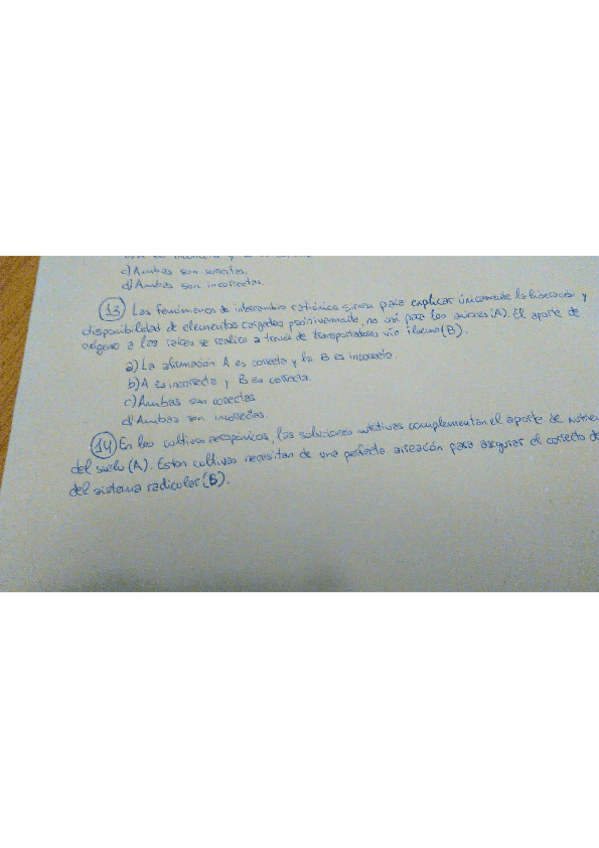 c) Ambas son correctas.
d) Ambas son incorrectas.
13 Los fenómenos de intercambio catiónico sirven para explicar únicamente la liberación y
disponibilidad de elementos cargados positivamente, no así para los aniones (A). El aporte de
oxígeno a las raíces se realiza a través de transportadores vía floema (B).
a) La afirmación A es correcta y la B es incorrecta.
b) A es incorrecta y B es correcta.
c) Ambas son correctas
d) Ambas son incorrectas.
14 En los cultivos aeropónicos, las soluciones nutritivas complementan el aporte de
del suelo (A). Estos cultivos necesitan de una perfecta aireación para asegurar el correcto
del sistema radicular (B).